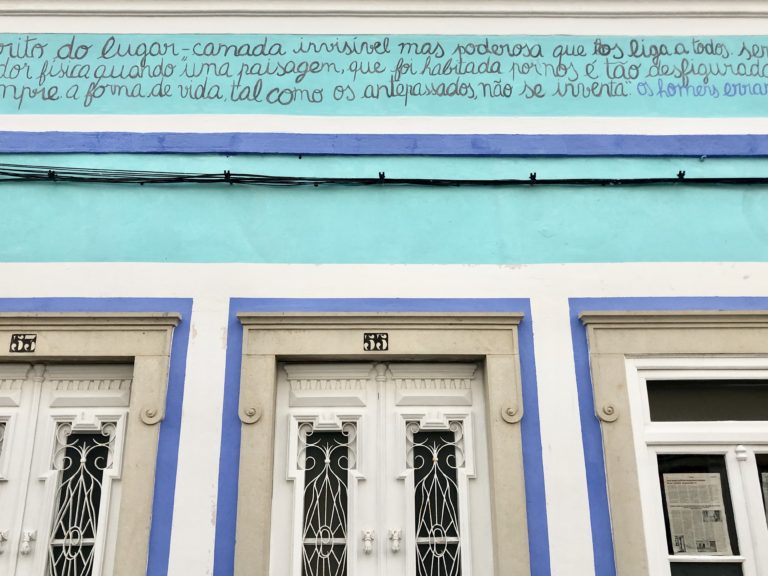 rito do lugar-camada invisível mas poderosa que nos liga a todos. ser
dor física quando "uma paisagem, que foi habitada por nós é tão desfigurada
mpre a forma de vida, tal como os antepassados, não se inventa". os homens erram
53
55